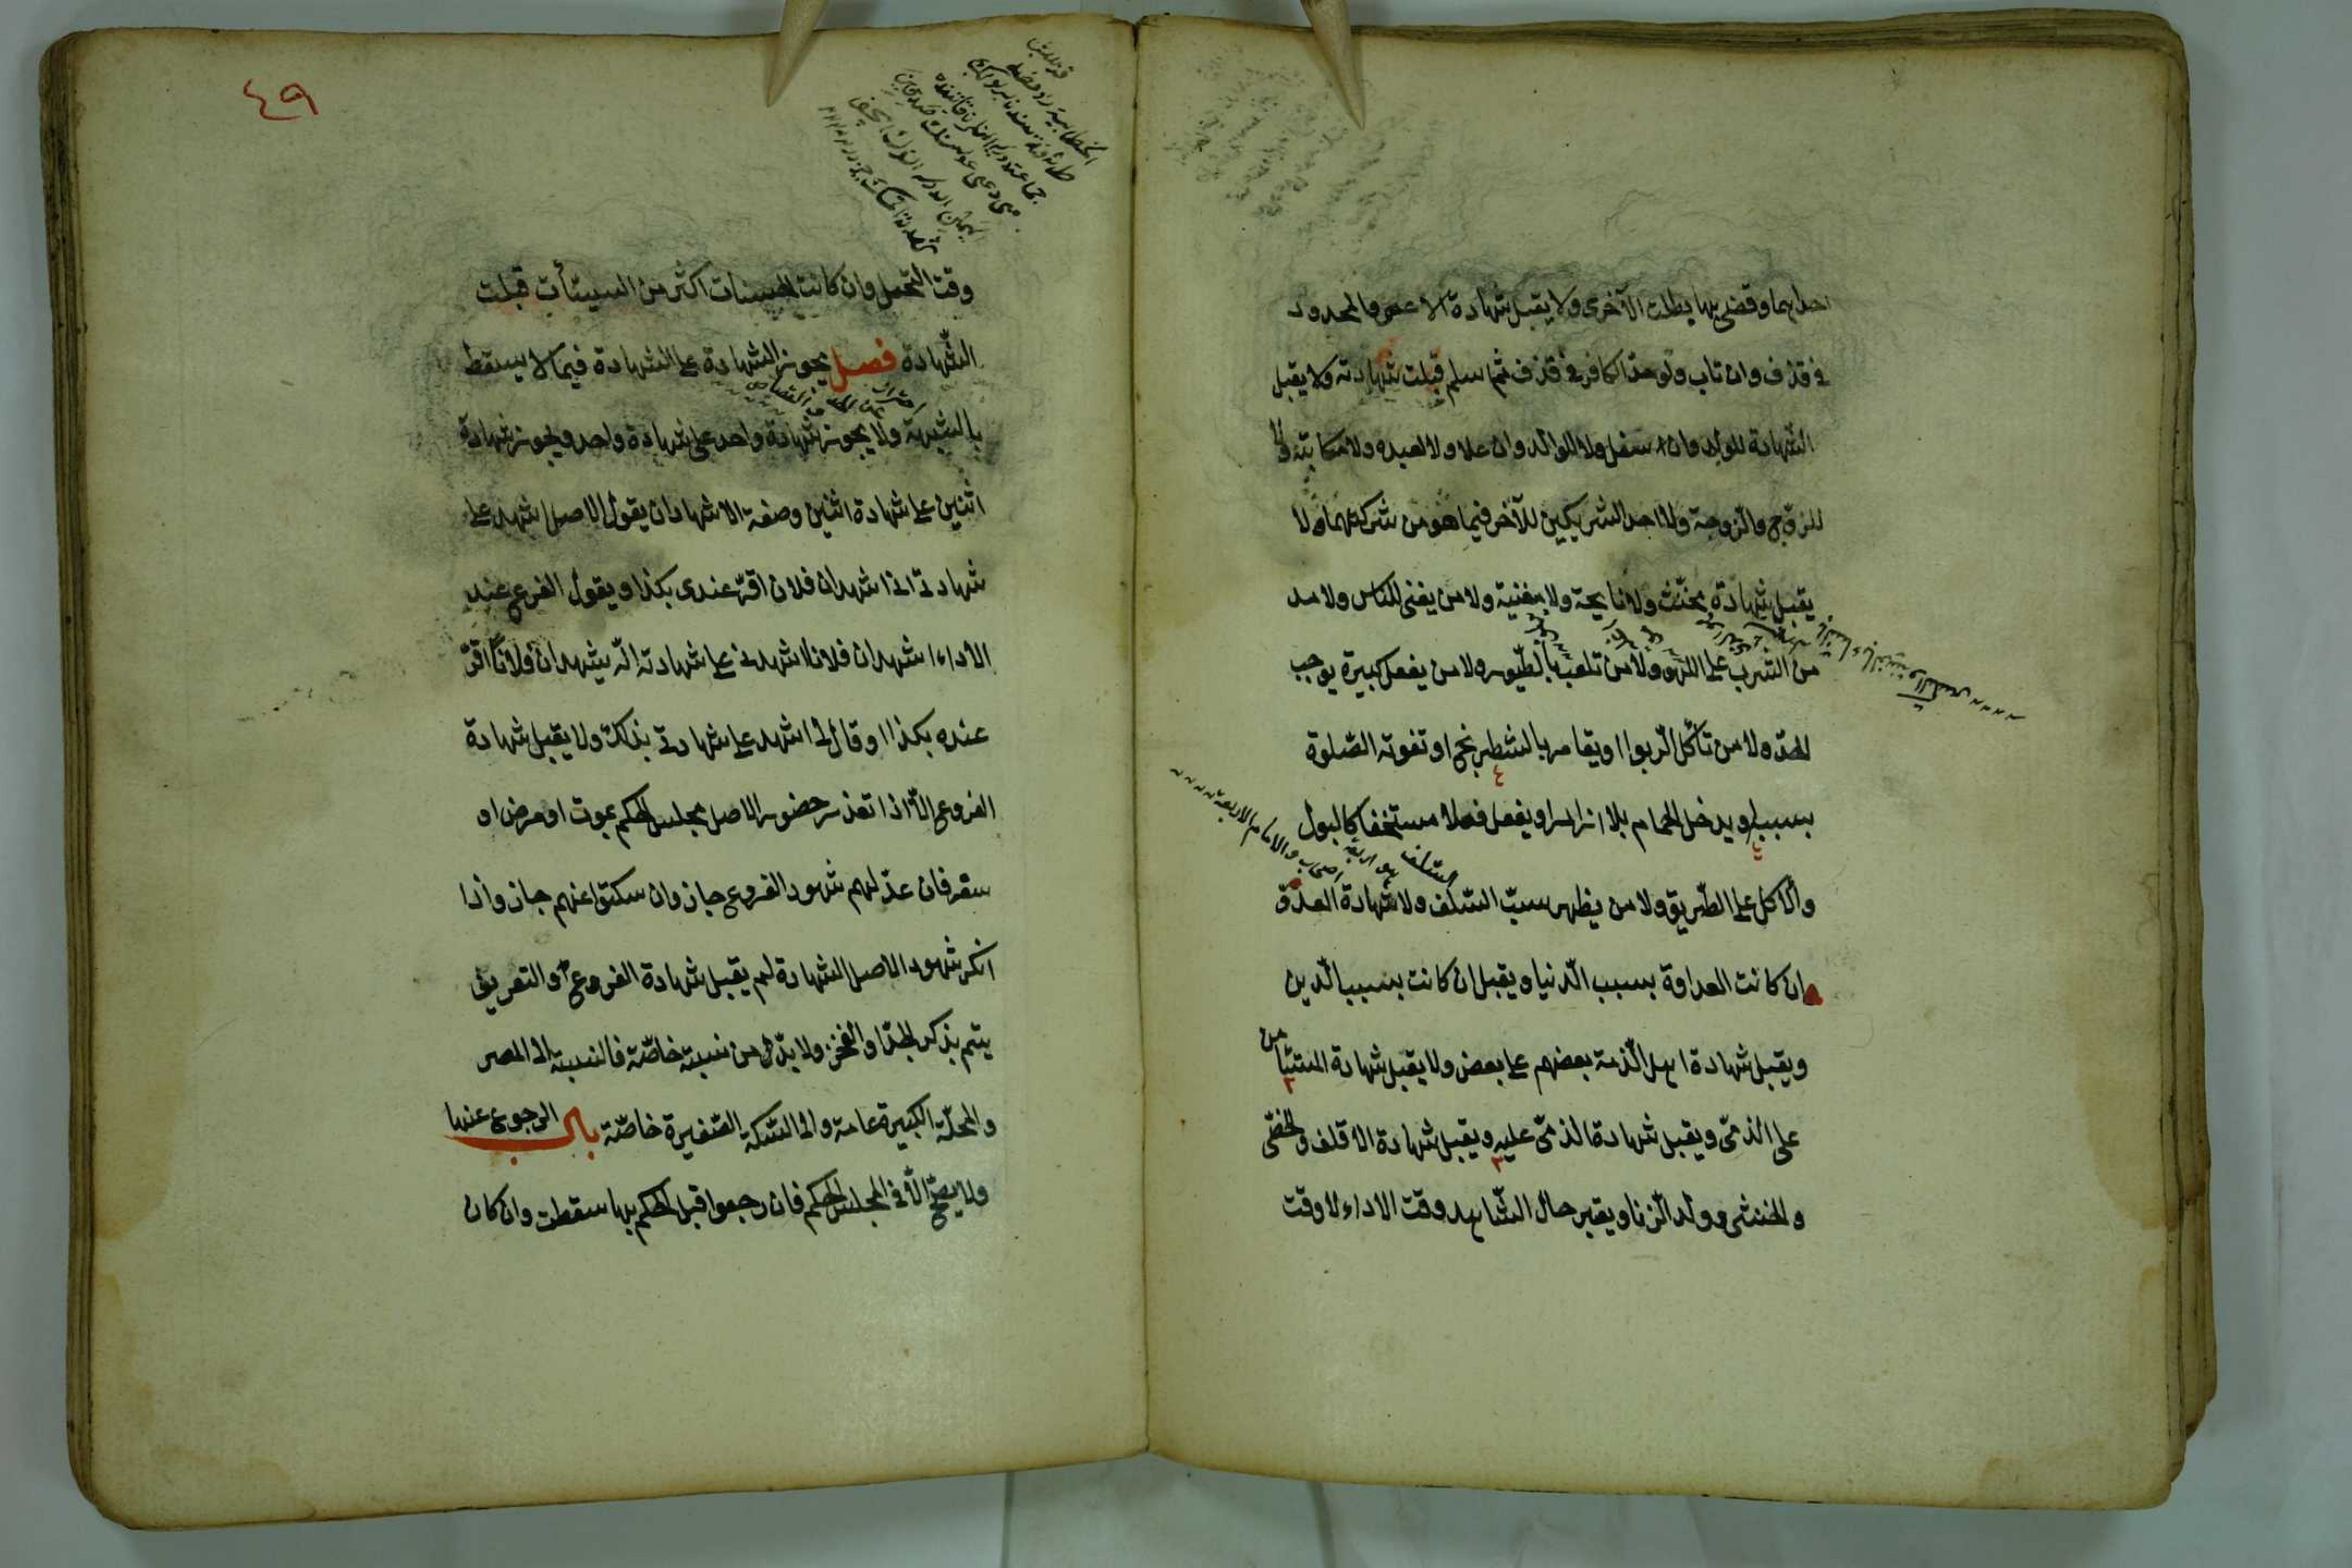 احدايهما وقضى بها بطلت الآخرى ولا يقبل شهادة الاعمى والمحدود
في قذف وان تاب ولو حدّ الكافر في قذف ثم اسلم قبلت شهادته ولا يقبل
الشهادة للولد وان سفل ولا للوالد وان علا ولا لعبده ولا مكاتبه ولا
للزوج والزوجة ولا احد الشريكين للآخر فيما هو من شركتهما ولا
يقبل شهادة مخنّث ولا نايحة ولا مغنية ولا من يغنى للناس ولا مد
من الشرب على اللهو ولا من تلعب بالطّيور ولا من يفعل كبيرة يوجب
الحدّ ولا من تأكل الربوا او يقامر بالشطرنج او تفوته الصّلوة
بسببها او يدخل الحمام بلا ازار او يفعل فعلا مستخفا كالبول
والاكل على الطّريق ولا من يظهر سبّ السّلف ولا شهادة العدوّ
السلف
والامام الاربعة
وان كانت العداوة بسبب الدّنيا ويقبل ان كانت بسبب الدّين
ويقبل شهادة اهل الذّمة بعضهم على بعض ولا يقبل شهادة المستأمن
على الذمّى ويقبل شهادة الذمّى عليه ويقبل شهادة الاقلف والخصّى
والخنثى وولد الزنا ويعتبر حال الشّاهد وقت الاداء لا وقت
٤٩
وقت التحمل وان كانت الحسنات اكثر من السيئات قبلت
الشّهادة فصل يجوز الشهادة على الشهادة فيما لا يسقط
بالشبهة ولا يجوز شهادة واحد على شهادة واحد ويجوز شهادة
اثنين على شهادة اثنين وصفة الاشهاد ان يقول الاصل اشهد على
شهادتى انى اشهد ان فلان اقرّ عندى بكذا ويقول الفرع عند
الاداء اشهد ان فلانا اشهدنى على شهادته انّه يشهد ان فلانًا اقرّ
عنده بكذا وقال لى اشهد على شهادتى بذلك ولا يقبل شهادة
الفروع الّا اذا تعذر حضور الاصل مجلس الحكم بموت او مرض او
سفر فان عدّلهم شهود الفروع جاز وان سكتوا عنهم جاز واذا
انكر شهود الاصل الشهادة لم يقبل شهادة الفروع والتعريف
يتم بذكر الجدّ او الفخذ ولا بدّ من نسبة خاصّة فالنسبة الى المصر
والمحلّة الكبيرة عامة والى السّكة الصّغيرة خاصّة باب الرجوع عنها
ولا يصحّ الّا فى المجلس الحكم فان رجعوا قبل الحكم بها سقطت وان كان